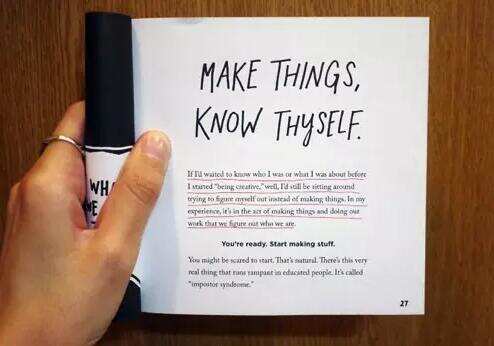 MAKE THINGS,
KNOW THYSELF.
If I'd waited to know who I was or what I was about before
I started "being creative," well, I'd still be sitting around
trying to figure myself out instead of making things. In my
experience, it's in the act of making things and doing our
work that we figure out who we are.
You're ready. Start making stuff.
You might be scared to start. That's natural. There's this very
real thing that runs rampant in educated people. It's called
"impostor syndrome."
27